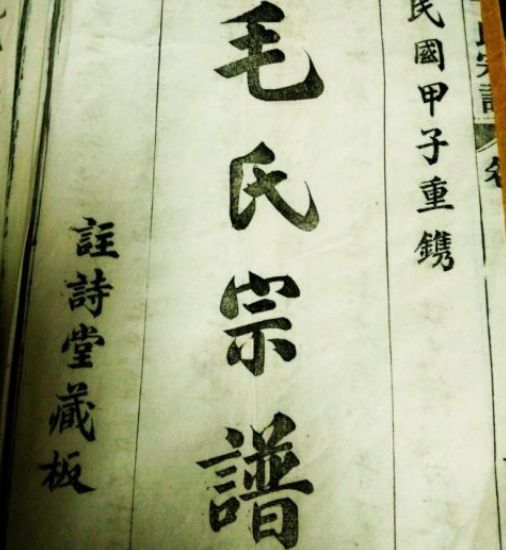 民國甲子重鐫
毛氏宗譜
註詩堂藏板